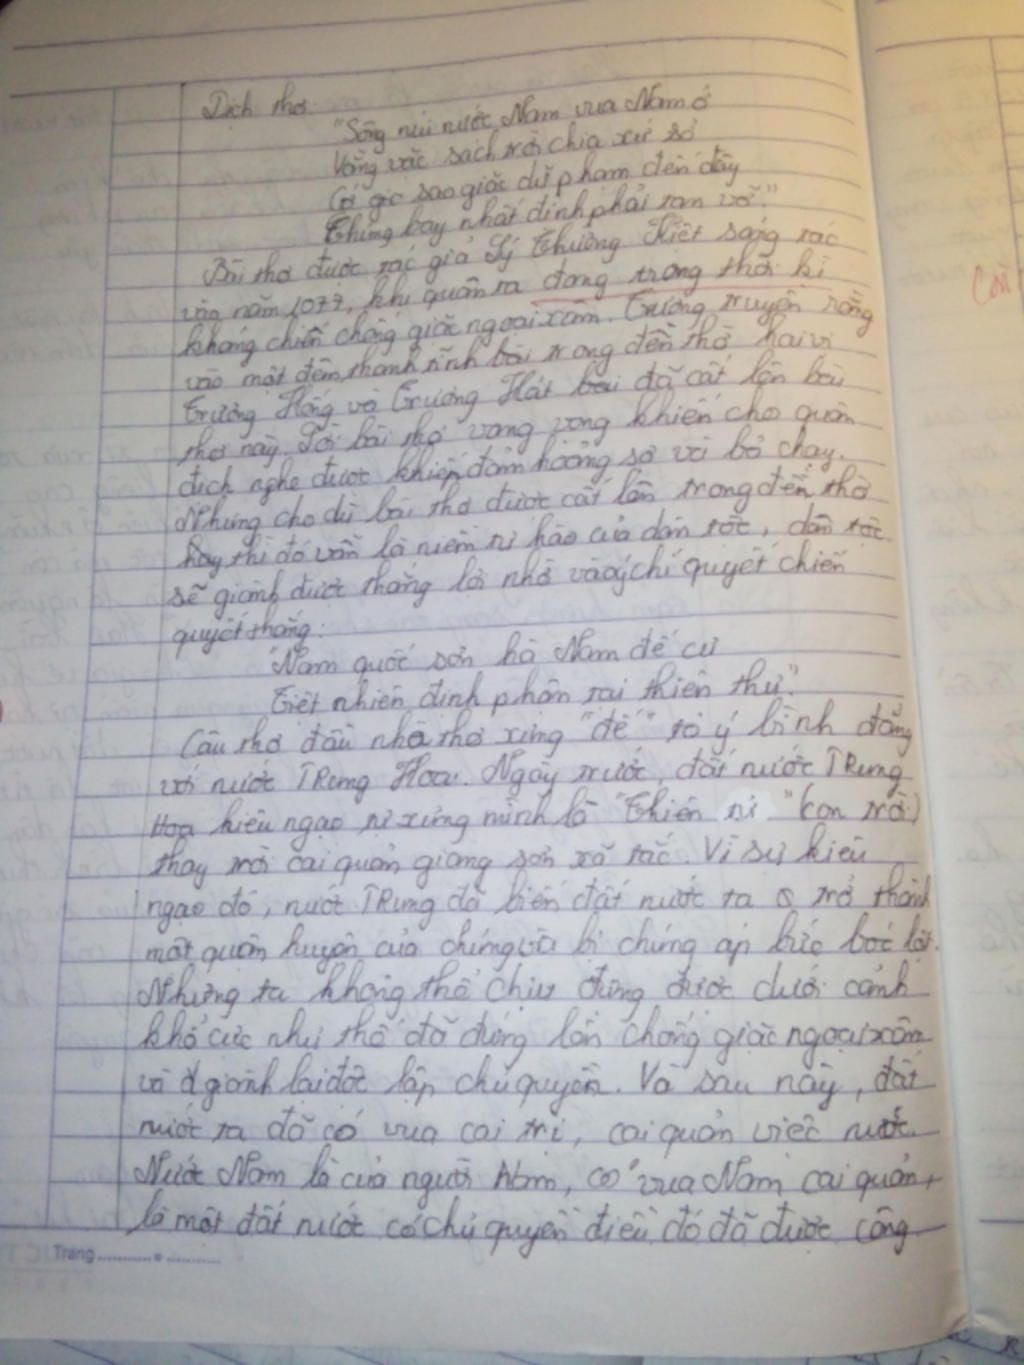 Dịch thơ:
"Sông núi nước Nam vua Nam ở
Vằng vặc sách trời chia xứ sở
Cớ gì sao giặc dữ phạm đến đây
Chúng bay nhất định phải tan vỡ."
Bài thơ được tác giả Lý Thường Kiệt sáng tác
vào năm 1077, khi quân ta đang trong thời kì
kháng chiến chống giặc ngoại xâm. Tương truyền rằng
vào một đêm thanh tĩnh bài trong đền thờ hai vị
Trương Hống và Trương Hát bài đã cất lên bài
thơ này. Lời bài thơ vang vọng khiến cho quân
địch nghe được khiếp đảm hoảng sợ vội bỏ chạy.
Nhưng cho dù bài thơ được cất lên trong đền thờ
hay thì đó vẫn là niềm tự hào của dân tộc, dân tộc
sẽ giành được thắng lợi nhờ vào ý chí quyết chiến
quyết thắng:
"Nam quốc sơn hà Nam đế cư
Tiết nhiên định phận tại thiên thư."
Câu thơ đầu nhà thơ xưng "đế" tỏ ý bình đẳng
với nước TRung Hoa. Ngày trước, đất nước TRung
Hoa kiêu ngạo tự xưng mình là "Thiên tử" (con trời)
thay trời cai quản giang sơn xã tắc. Vì sự kiêu
ngạo đó, nước TRung đã biến đất nước ta trở thành
một quận huyện của chúng và bị chúng áp bức bóc lột.
Nhưng ta không thể chịu đựng được dưới cảnh
khổ cực như thế đã đứng lên chống giặc ngoại xâm
và giành lại độc lập chủ quyền. Và sau này, đất
nước ta đã có vua cai trị, cai quản việc nước.
Nước Nam là của người Nam, có vua Nam cai quản,
là một đất nước có chủ quyền điều đó đã được công
Trang
Còn